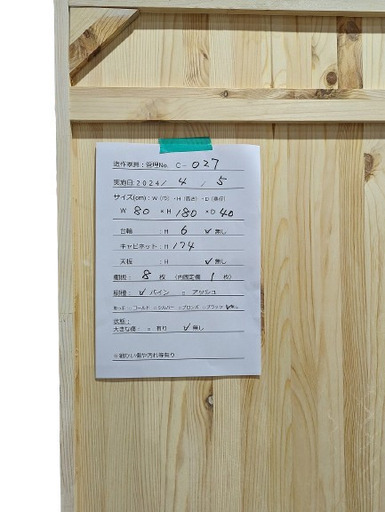 造作家具：管理No. C－027
実施日：2024 / 4 / 5
サイズ(cm)：W（巾）・H（高さ）・D（奥行）
W 80 × H 180 × D 40
台輪 ：H 6 ✓ 無し
キャビネット：H 174
天板 ：H ✓ 無し
棚板： 8 枚 （内固定棚 1 枚）
樹種： ✓ パイン □ アッシュ
□ゴールド □シルバー □ブロンズ □ブラック ✓無し
状態：
大きな傷： □ 有り ✓ 無し
※細かい傷や汚れ等有り